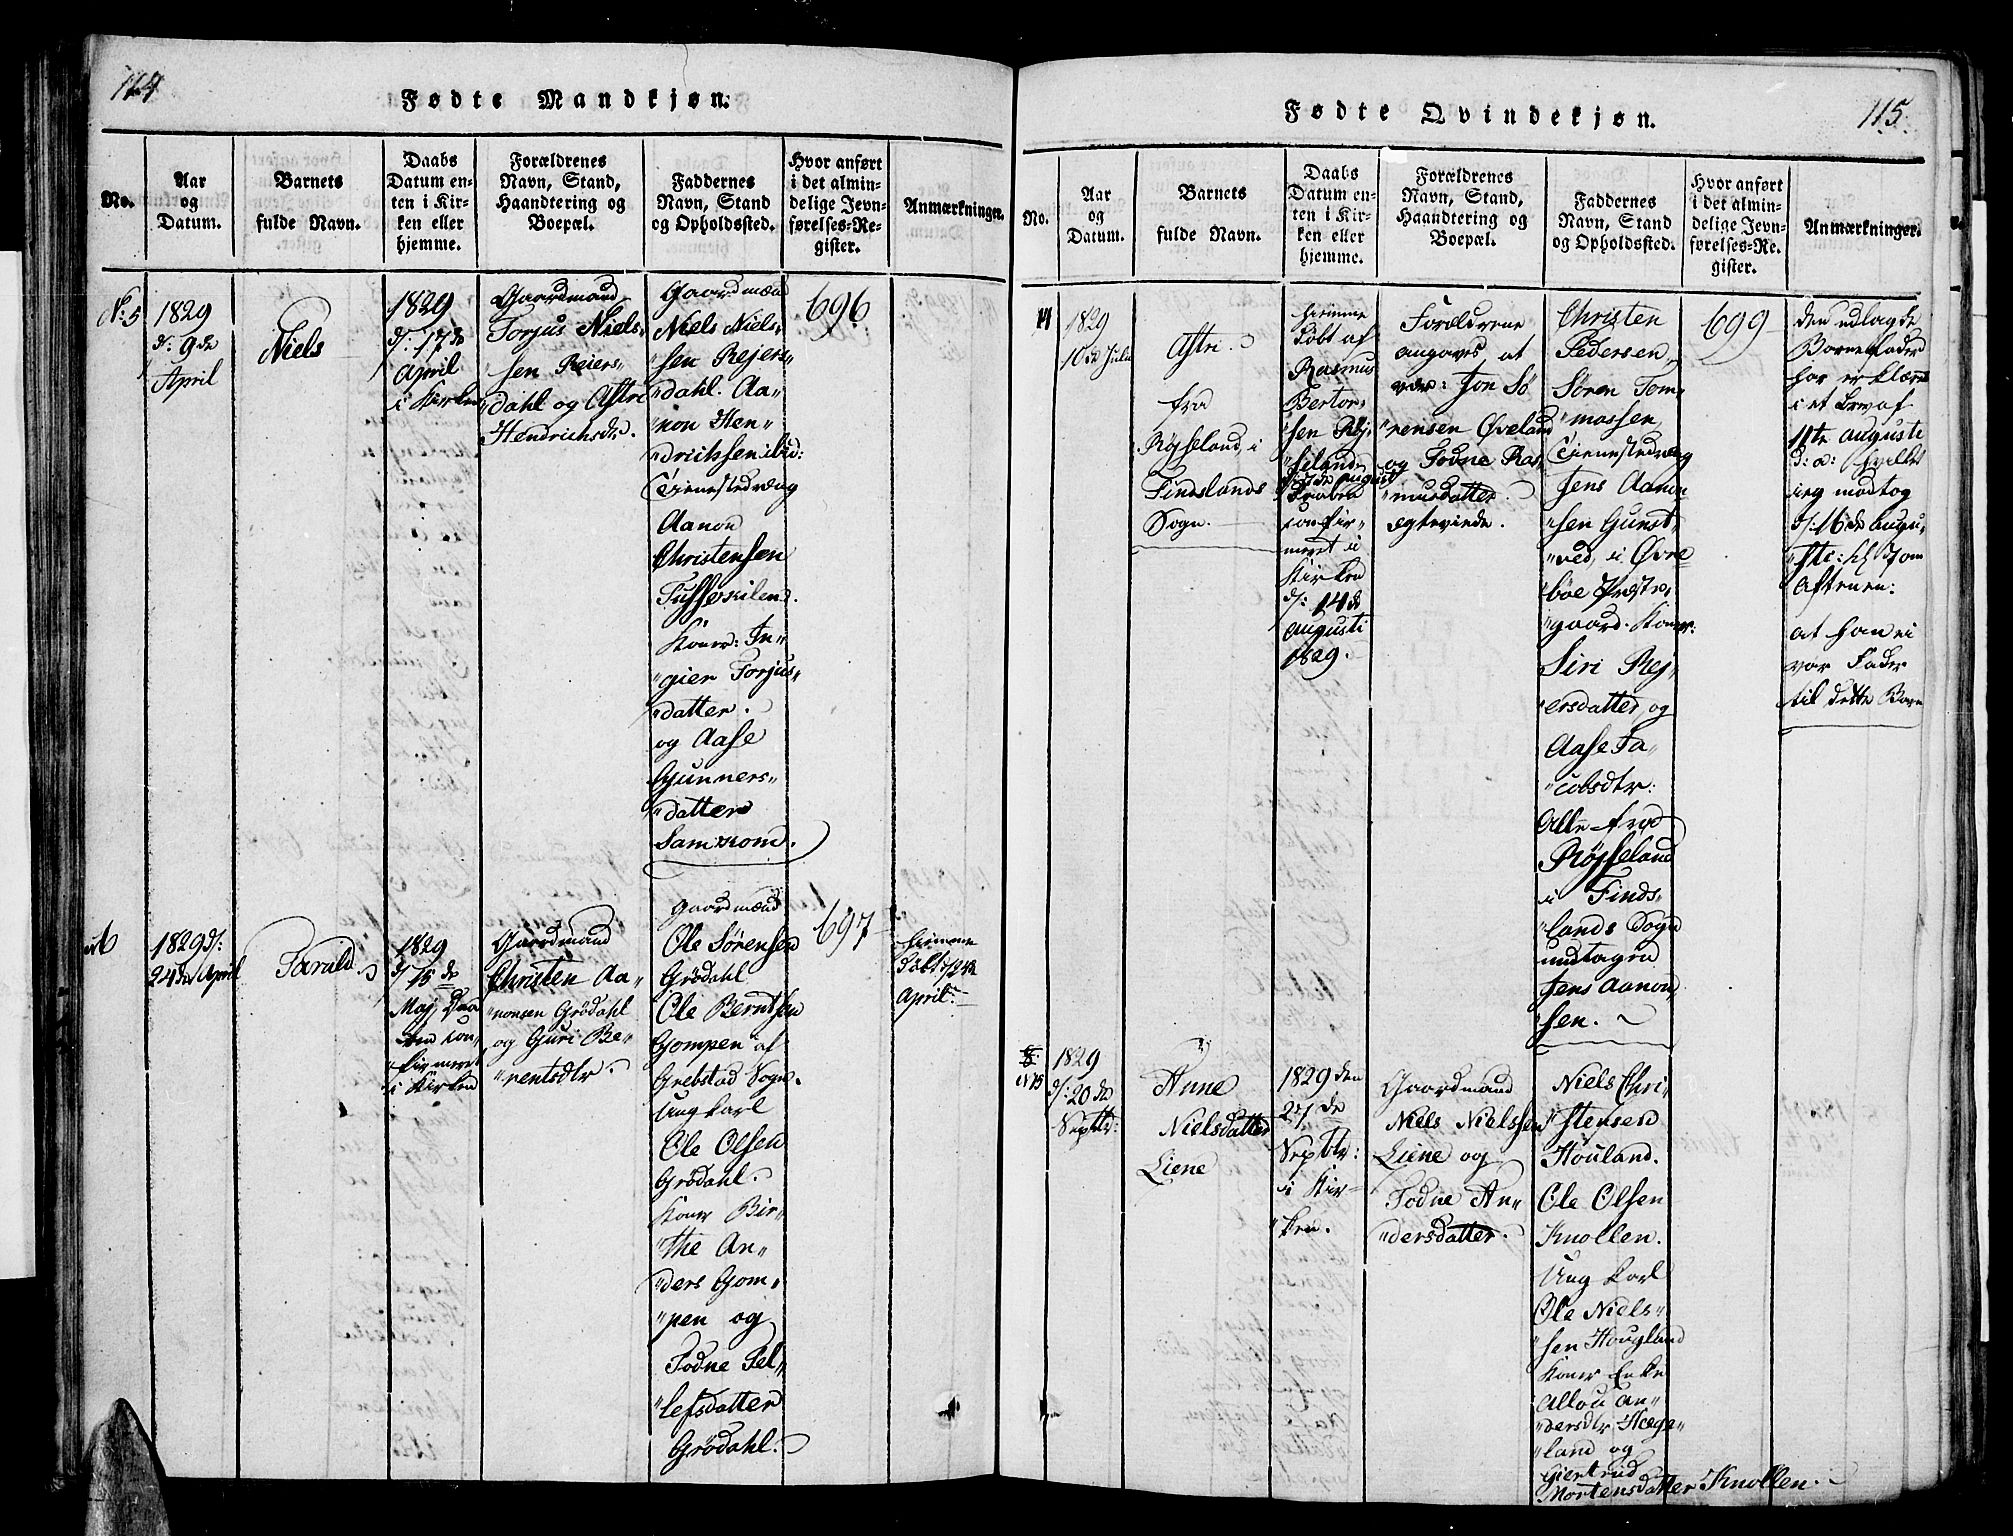 114
Fødte Mandkjøn.
No.
Aar
og
Datum.
Barnets
fulde Navn.
Daabs
Datum en-
ten i Kir-
ken eller
hjemme.
Forældrenes
Navn, Stand,
Haandtering og
Boepæl.
Faddernes
Navn, Stand
og Opholdssted.
Hvor anført
i det almin-
delige Jevn-
førelses-Re-
gister.
Anmærkninger.
No: 5
1829
d: 9de
April
Niels
1829
d: 17de
April
i Kirken
Gaardmand
Torjus Niels„
„sen Reiers„
„dahl og Astri
Hendrichsdr.
Gaardmænd
Niels Niels„
„sen Rejers„
„dahl. Aa„
„non Hen„
„drichsen ibid:
Tienestedreng
Aanon
Christensen
Koner: In„
„gier Torjus„
„datter.
og Aase
Gunners„
„datter
Samkom.
696
6
1829 d:
24de April
Taruld
1829
d: 15de
Maj, Daa
ben con„
„firmeret
i Kirken
Gaardmand
Christen Aa„
„nonsen Grödahl
og Guri Be„
„rentsdtr.
Gaardmænd
Ole Sörensen
Grödahl
Ole Berntsen
Gompen af
Grebstad Sogn.
Ung karl
Ole Olsen
Grödahl.
Koner Bir„
„the An„
„ders Gom„
„pen og
Todne Tel„
„lefsdatter
Grödahl.
697
hiemme
döbt d: 24de
April
115.
Fødte Qvindekjøn.
No.
Aar
og
Datum.
Barnets
fulde Navn.
Daabs
Datum en-
ten i Kir-
ken eller
hjemme.
Forældrenes
Navn, Stand,
Haandtering og
Boepæl.
Faddernes
Navn, Stand
og Opholdssted.
Hvor anført
i det almin-
delige Jevn-
førelses-Re-
gister.
Anmærkninger.
14
1829
10de Julii
Astri.
fra
Röysseland, i
Findslands
Sogn.
hiemme
döbt af
Rasmus
Bertor„
„sen Röj„
„seland
d: 7de august
Daaben
confir„
meret i
Kirken
d: 14de
augusti
1829.
Forældrene
angaves, at
være: Jon Sö„
„rensen Öveland
og Todne Ras„
„musdatter.
egteviede.
Christen
Pedersen,
Sören Tom„
„massen,
Tienestedreng
Jens Aanon„
„sen Gunst„
„ved, i Øvre„
böe Præste„
„gaard. Koner:
Siri Rej„
„ersdatter, og
Aase Ja„
„cobsdtr:
Alle fra
Röysseland
i Finds„
„lands Sogn
undtagen
Jens Aanon„
sen.
699
den udlagte
Barnefader
har erklæret
i et Brev af
11te augusti
d: a: hvilket
ieg modtog
d: 16de augu„
„sti: kl 7 om
Aftenen:
at han ei
var Fader
til dette Barn
No 15
1829
d: 20de
Septbr:
Anne
Nielsdatter
Liene
1829 den
27de
Septbr:
i Kir„
„ken.
Gaardmand
Niels Nielssen
Liene og
Todne An„
„dersdatter.
Niels Chri„
„stensen
Höuland.
Ole Olsen
Knollen.
Ung karl
Ole Niels„
„sen Hougland
Koner Enke
Allou An„
„dersdtr Hæge„
„land og
Giertrud
Mortensdatter Knollen.